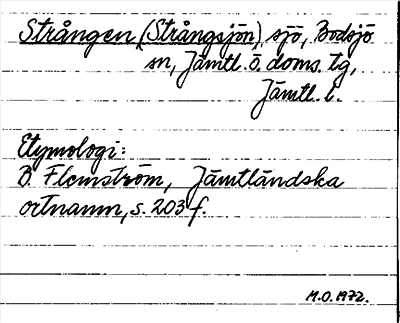 Strången (Strångsjön), sjö, Bodsjö
sn, Jämtl. ö. doms. tg,
Jämtl. l.
Etymologi:
B. Flemström, Jämtländska
ortnamn, s. 203 f.
M.O. 1972.